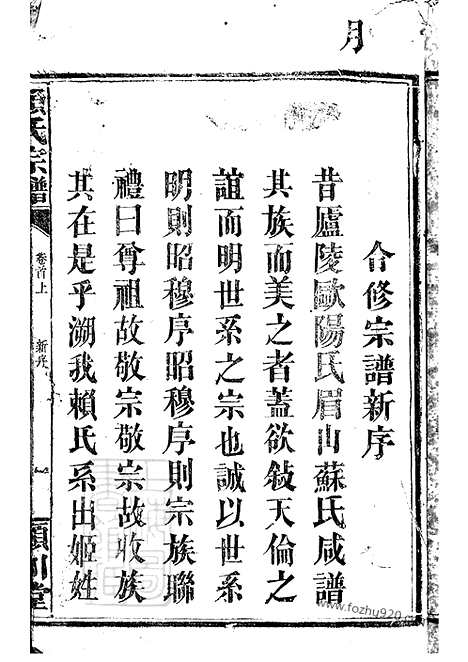 月
合修宗譜新序
昔廬陵歐陽氏眉山蘇氏咸譜
其族而美之者蓋欲敍天倫之
誼而明世系之宗也誠以世系
明則昭穆序昭穆序則宗族聯
禮曰尊祖故敬宗敬宗故收族
其在是乎溯我賴氏系出姬姓
氏宗譜
卷首上
新序
一
堂
www.fozhu920.com